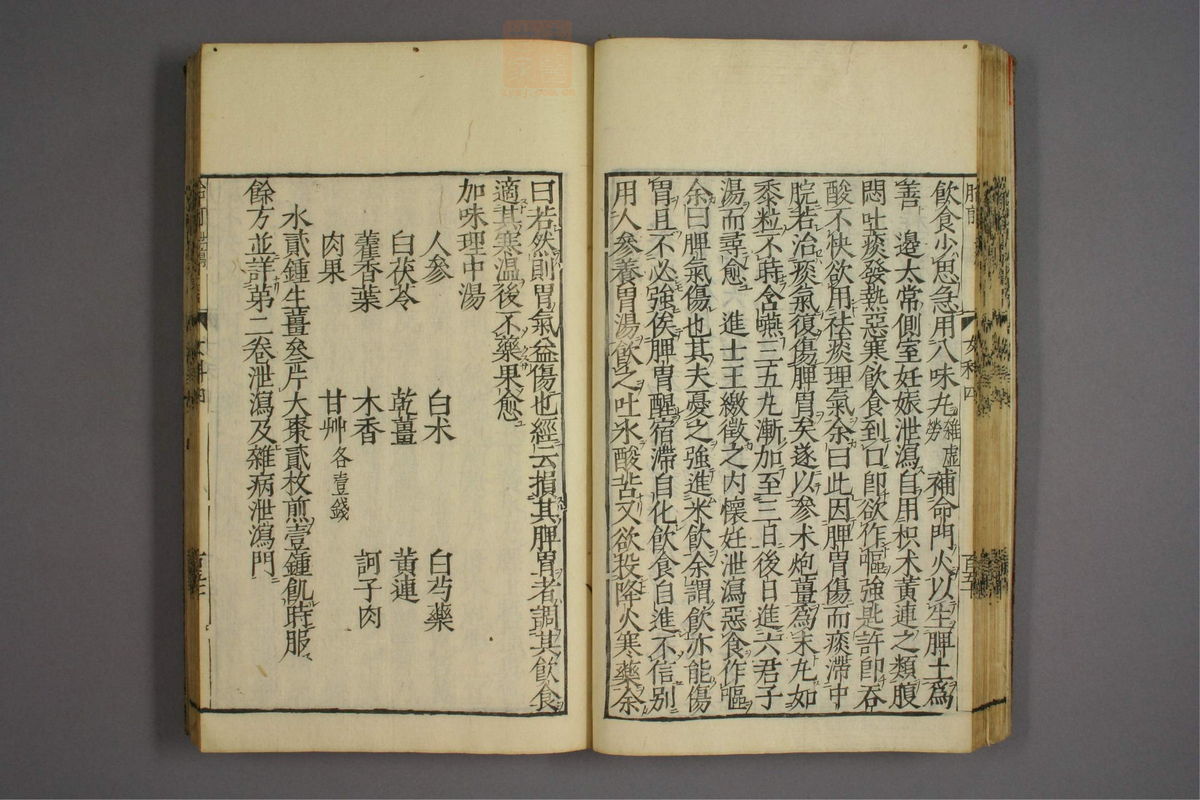 飲食少思急用八味丸雜虛勞補命門火以生脾土爲
善　邊太常側室妊娠泄瀉自用枳术黃連之類腹
悶吐痰發熱惡寒飲食到口卽欲作嘔強匙許卽吞
酸不快欲用祛痰理氣余曰此因脾胃傷而痰滯中
脘若治痰氣復傷脾胃矣遂以參术炮薑爲末丸如
黍粒不時含嚥三五丸漸加至三百後日進六君子
湯而尋愈　進士王繳徵之內懷妊泄瀉惡食作嘔
余曰脾氣傷也其夫憂之強進米飲余謂飲亦能傷
胃且不必強俟脾胃醒宿滯自化飲食自進不信別
用人參養胃湯飲之吐水酸苦又欲投降火寒藥余
女科四
曰若然則胃氣益傷也經云損其脾胃者調其飲食
適其寒溫後不藥果愈
加味理中湯
人參　白术　白芍藥
白茯苓　乾薑　黃連
藿香葉　木香　訶子肉
肉果　甘艸各壹錢
水貳鍾生薑叄片大棗貳枚煎壹鍾飢時服
餘方並詳第二卷泄瀉及雜病泄瀉門